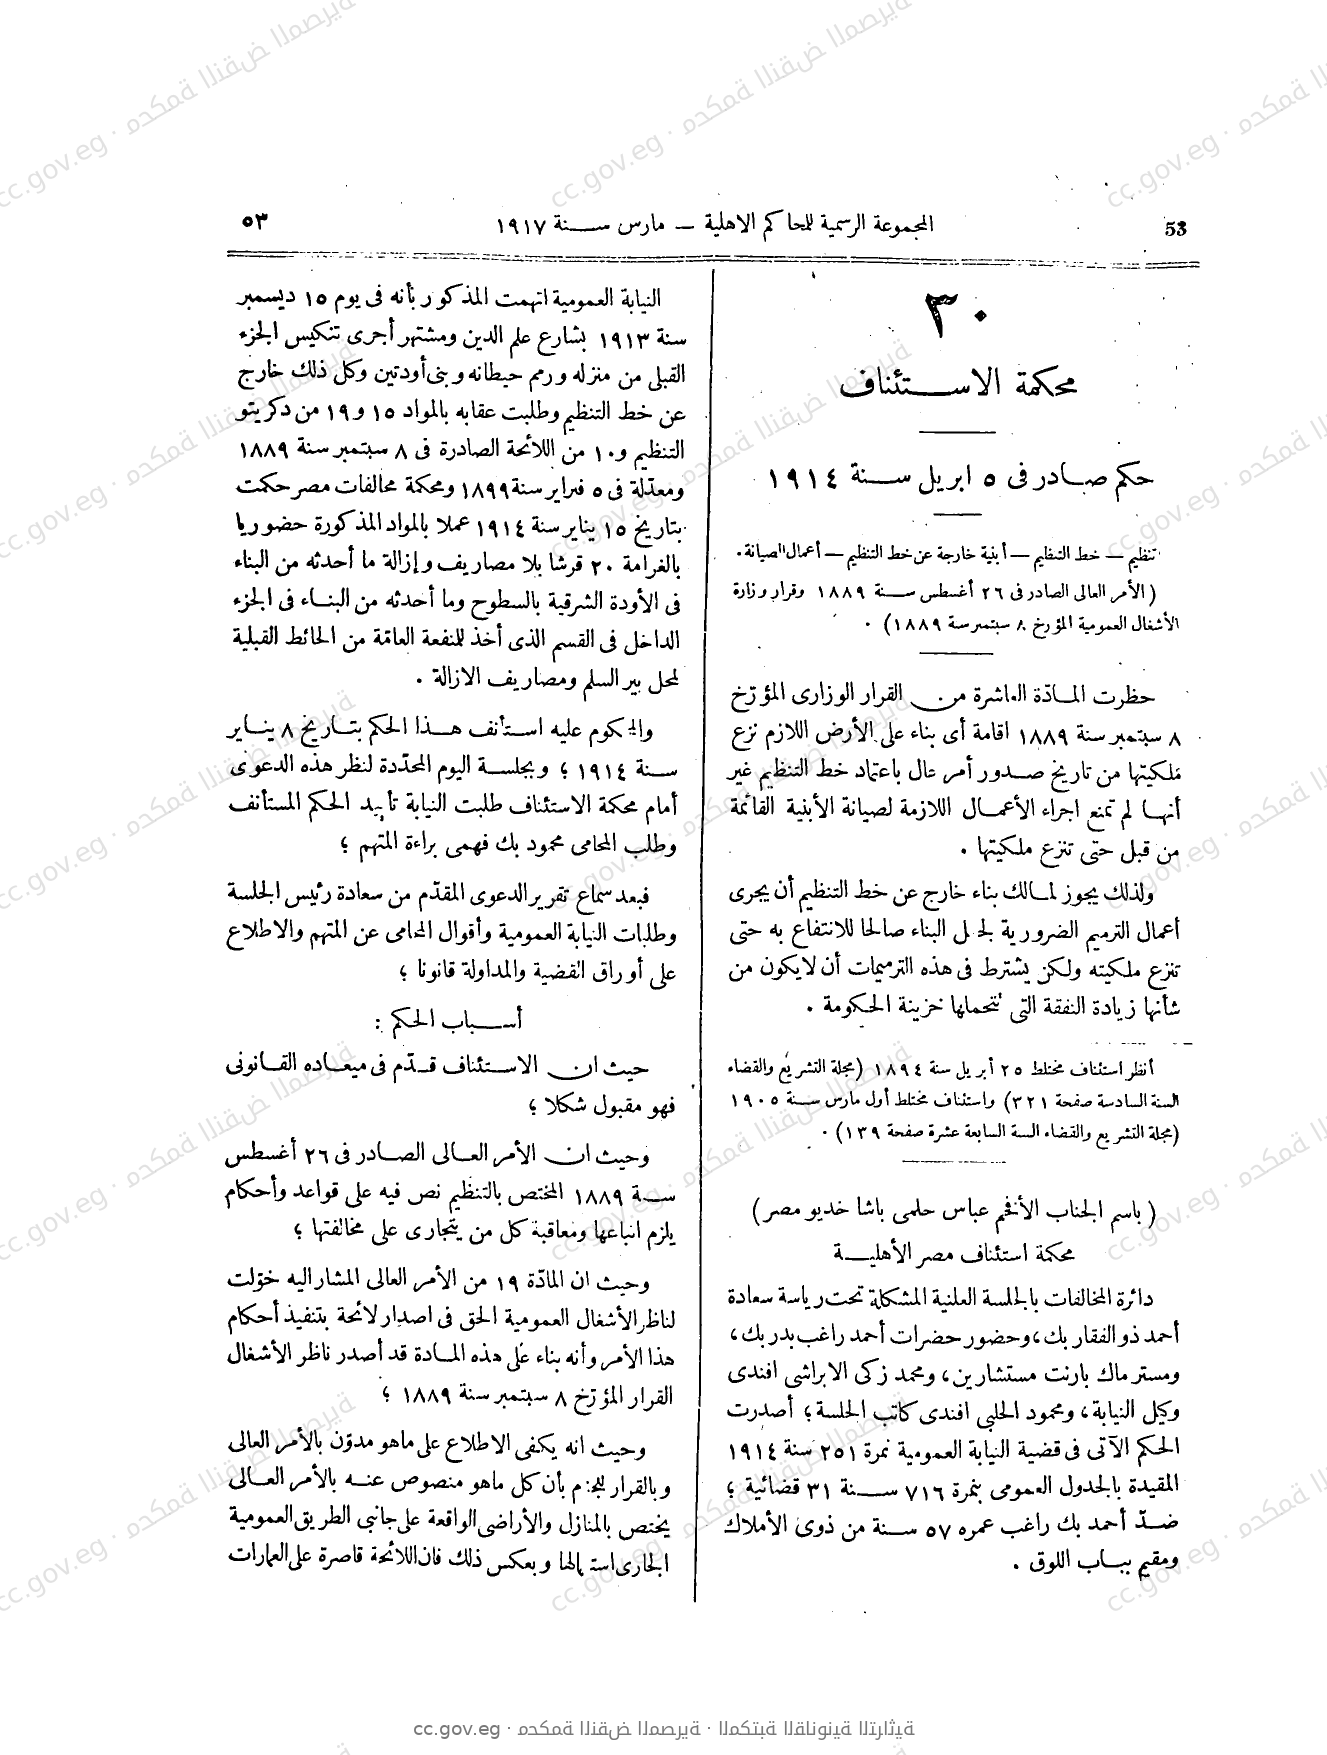 53
المجموعة الرسمية للمحاكم الاهلية — مارس سنة ١٩١٧
٥٣
٣٠
محكمة الاستئناف
حكم صادر فى ٥ ابريل سنة ١٩١٤
تنظيم — خط التنظيم — أبنية خارجة عن خط التنظيم — أعمال الصيانة.
(الأمر العالى الصادر فى ٢٦ أغسطس سنة ١٨٨٩ وقرار وزارة
الأشغال العمومية المؤرخ ٨ سبتمبر سنة ١٨٨٩).
حظرت المادّة العاشرة من القرار الوزارى المؤرّخ
٨ سبتمبر سنة ١٨٨٩ اقامة أى بناء على الأرض اللازم نزع
ملكيتها من تاريخ صدور أمر عال باعتماد خط التنظيم غير
أنها لم تمنع اجراء الأعمال اللازمة لصيانة الأبنية القائمة
من قبل حتى تنزع ملكيتها.
ولذلك يجوز لمالك بناء خارج عن خط التنظيم أن يجرى
أعمال الترميم الضرورية لجعل البناء صالحا للانتفاع به حتى
تنزع ملكيته ولكن يشترط فى هذه الترميمات أن لا يكون من
شأنها زيادة النفقة التى تتحملها خزينة الحكومة.
أنظر استئناف مختلط ٢٥ أبريل سنة ١٨٩٤ (مجلة التشريع والقضاء
السنة السادسة صفحة ٣٢١) واستئناف مختلط أول مارس سنة ١٩٠٥
(مجلة التشريع والقضاء السنة السابعة عشرة صفحة ١٣٩).
(باسم الجناب الأفخم عباس حلمى باشا خديو مصر)
محكمة استئناف مصر الأهلية
دائرة المخالفات بالجلسة العلنية المشكلة تحت رياسة سعادة
أحمد ذو الفقار بك، وحضور حضرات أحمد راغب بدر بك،
ومستر ماك بارنت مستشارين، ومحمد زكى الابراشى افندى
وكيل النيابة، ومحمود الحلبى افندى كاتب الجلسة؛ أصدرت
الحكم الآتى فى قضية النيابة العمومية نمرة ٢٥١ سنة ١٩١٤
المقيدة بالجدول العمومى بنمرة ٧١٦ سنة ٣١ قضائية؛
ضدّ أحمد بك راغب عمره ٥٧ سنة من ذوى الأملاك
ومقيم بباب اللوق.
النيابة العمومية اتهمت المذكور بأنه فى يوم ١٥ ديسمبر
سنة ١٩١٣ بشارع علم الدين ومشتهر أجرى تنكيس الجزء
القبلى من منزله ورمم حيطانه وبنى أودتين وكل ذلك خارج
عن خط التنظيم وطلبت عقابه بالمواد ١٥ و١٩ من دكريتو
التنظيم و١٠ من اللائحة الصادرة فى ٨ سبتمبر سنة ١٨٨٩
ومعدّلة فى ٥ فبراير سنة ١٨٩٩ ومحكمة مخالفات مصر حكمت
بتاريخ ١٥ يناير سنة ١٩١٤ عملا بالمواد المذكورة حضوريا
بالغرامة ٢٠ قرشا بلا مصاريف وإزالة ما أحدثه من البناء
فى الأودة الشرقية بالسطوح وما أحدثه من البناء فى الجزء
الداخل فى القسم الذى أخذ للمنفعة العامّة من الحائط القبلية
لمحل بير السلم ومصاريف الازالة.
والمحكوم عليه استأنف هذا الحكم بتاريخ ٨ يناير
سنة ١٩١٤؛ وبجلسة اليوم المحدّدة لنظر هذه الدعوى
أمام محكمة الاستئناف طلبت النيابة تأييد الحكم المستأنف
وطلب المحامى محمود بك فهمى براءة المتهم؛
فبعد سماع تقرير الدعوى المقدّم من سعادة رئيس الجلسة
وطلبات النيابة العمومية وأقوال المحامى عن المتهم والاطلاع
على أوراق القضية والمداولة قانونا؛
أسباب الحكم:
حيث ان الاستئناف قدّم فى ميعاده القانونى
فهو مقبول شكلا؛
وحيث ان الأمر العالى الصادر فى ٢٦ أغسطس
سنة ١٨٨٩ المختص بالتنظيم نص فيه على قواعد وأحكام
يلزم اتباعها ومعاقبة كل من يتجارى على مخالفتها؛
وحيث ان المادّة ١٩ من الأمر العالى المشار اليه خوّلت
لناظر الأشغال العمومية الحق فى اصدار لائحة بتنفيذ أحكام
هذا الأمر وأنه بناء على هذه المادة قد أصدر ناظر الأشغال
القرار المؤرّخ ٨ سبتمبر سنة ١٨٨٩؛
وحيث انه يكفى الاطلاع على ماهو مدوّن بالأمر العالى
وبالقرار للجزم بأن كل ماهو منصوص عنه بالأمر العالى
يختص بالمنازل والأراضى الواقعة على جانبى الطريق العمومية
الجارى استعمالها وبعكس ذلك فان اللائحة قاصرة على العمارات
cc.gov.eg · محكمة النقض المصرية · المكتبة القانونية التراثية